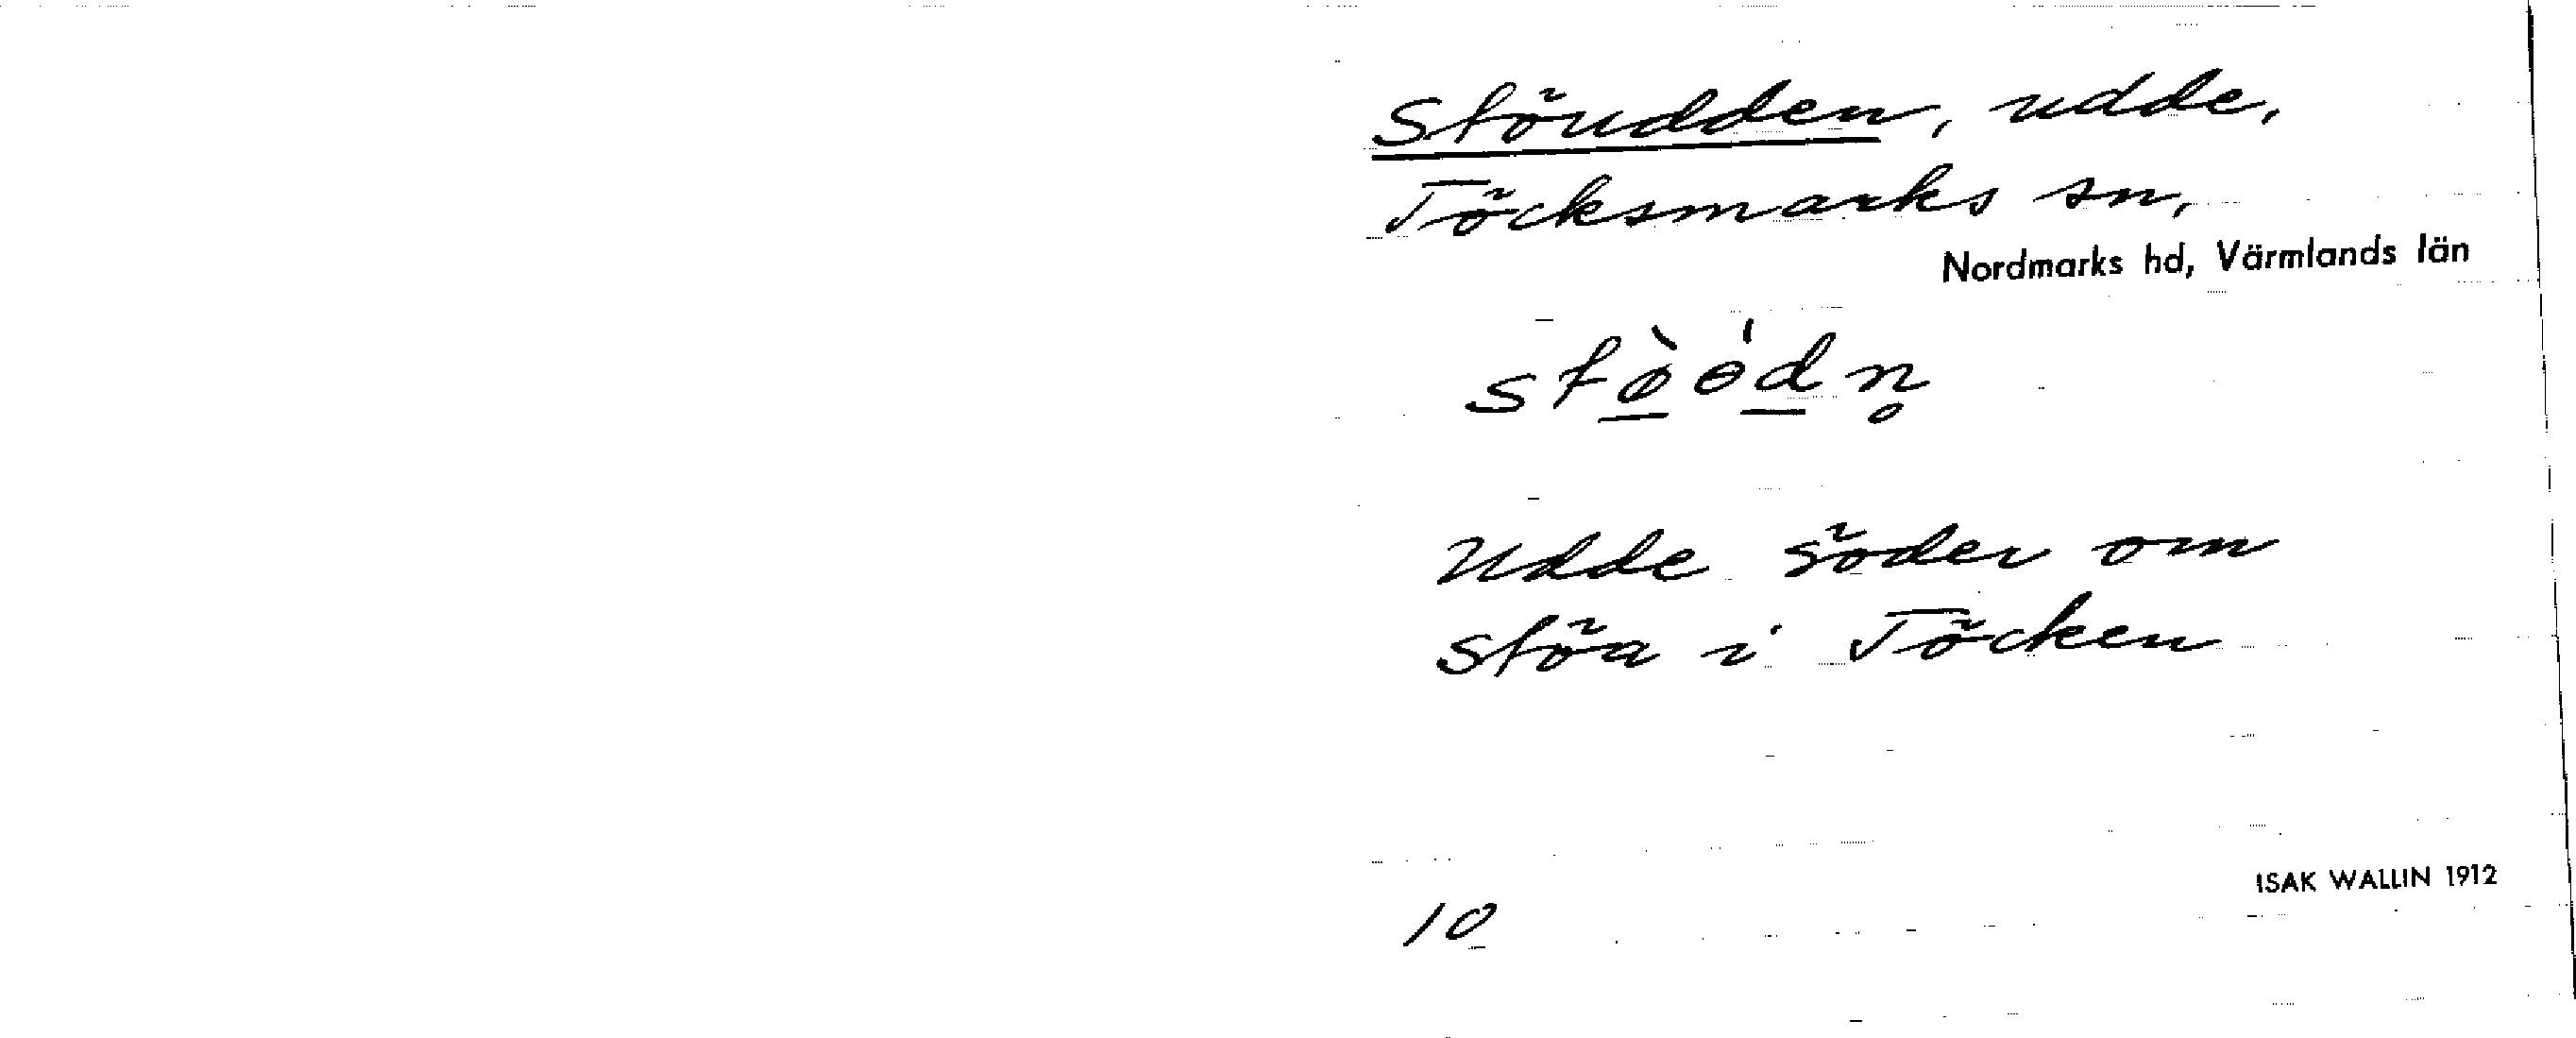 Stöudden, udde,
Töcksmarks sn,
Nordmarks hd, Värmlands län
stø̀ɵ́dn̥
Udde söder om
Stöa i Töcken
ISAK WALLIN 1912
10